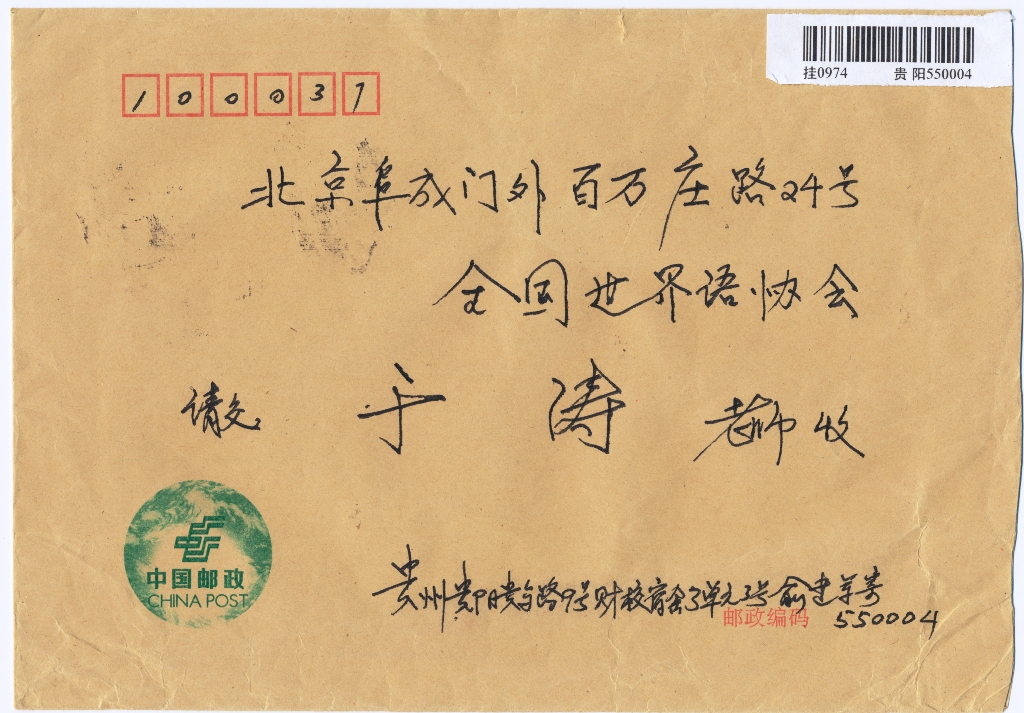 挂0974 贵阳550004
100037
北京阜成门外百万庄路24号
全国世界语协会
请交 于涛 老师 收
中国邮政
CHINA POST
贵州贵阳贵乌路9号财校宿舍3单元2号 俞建革寄
邮政编码 550004